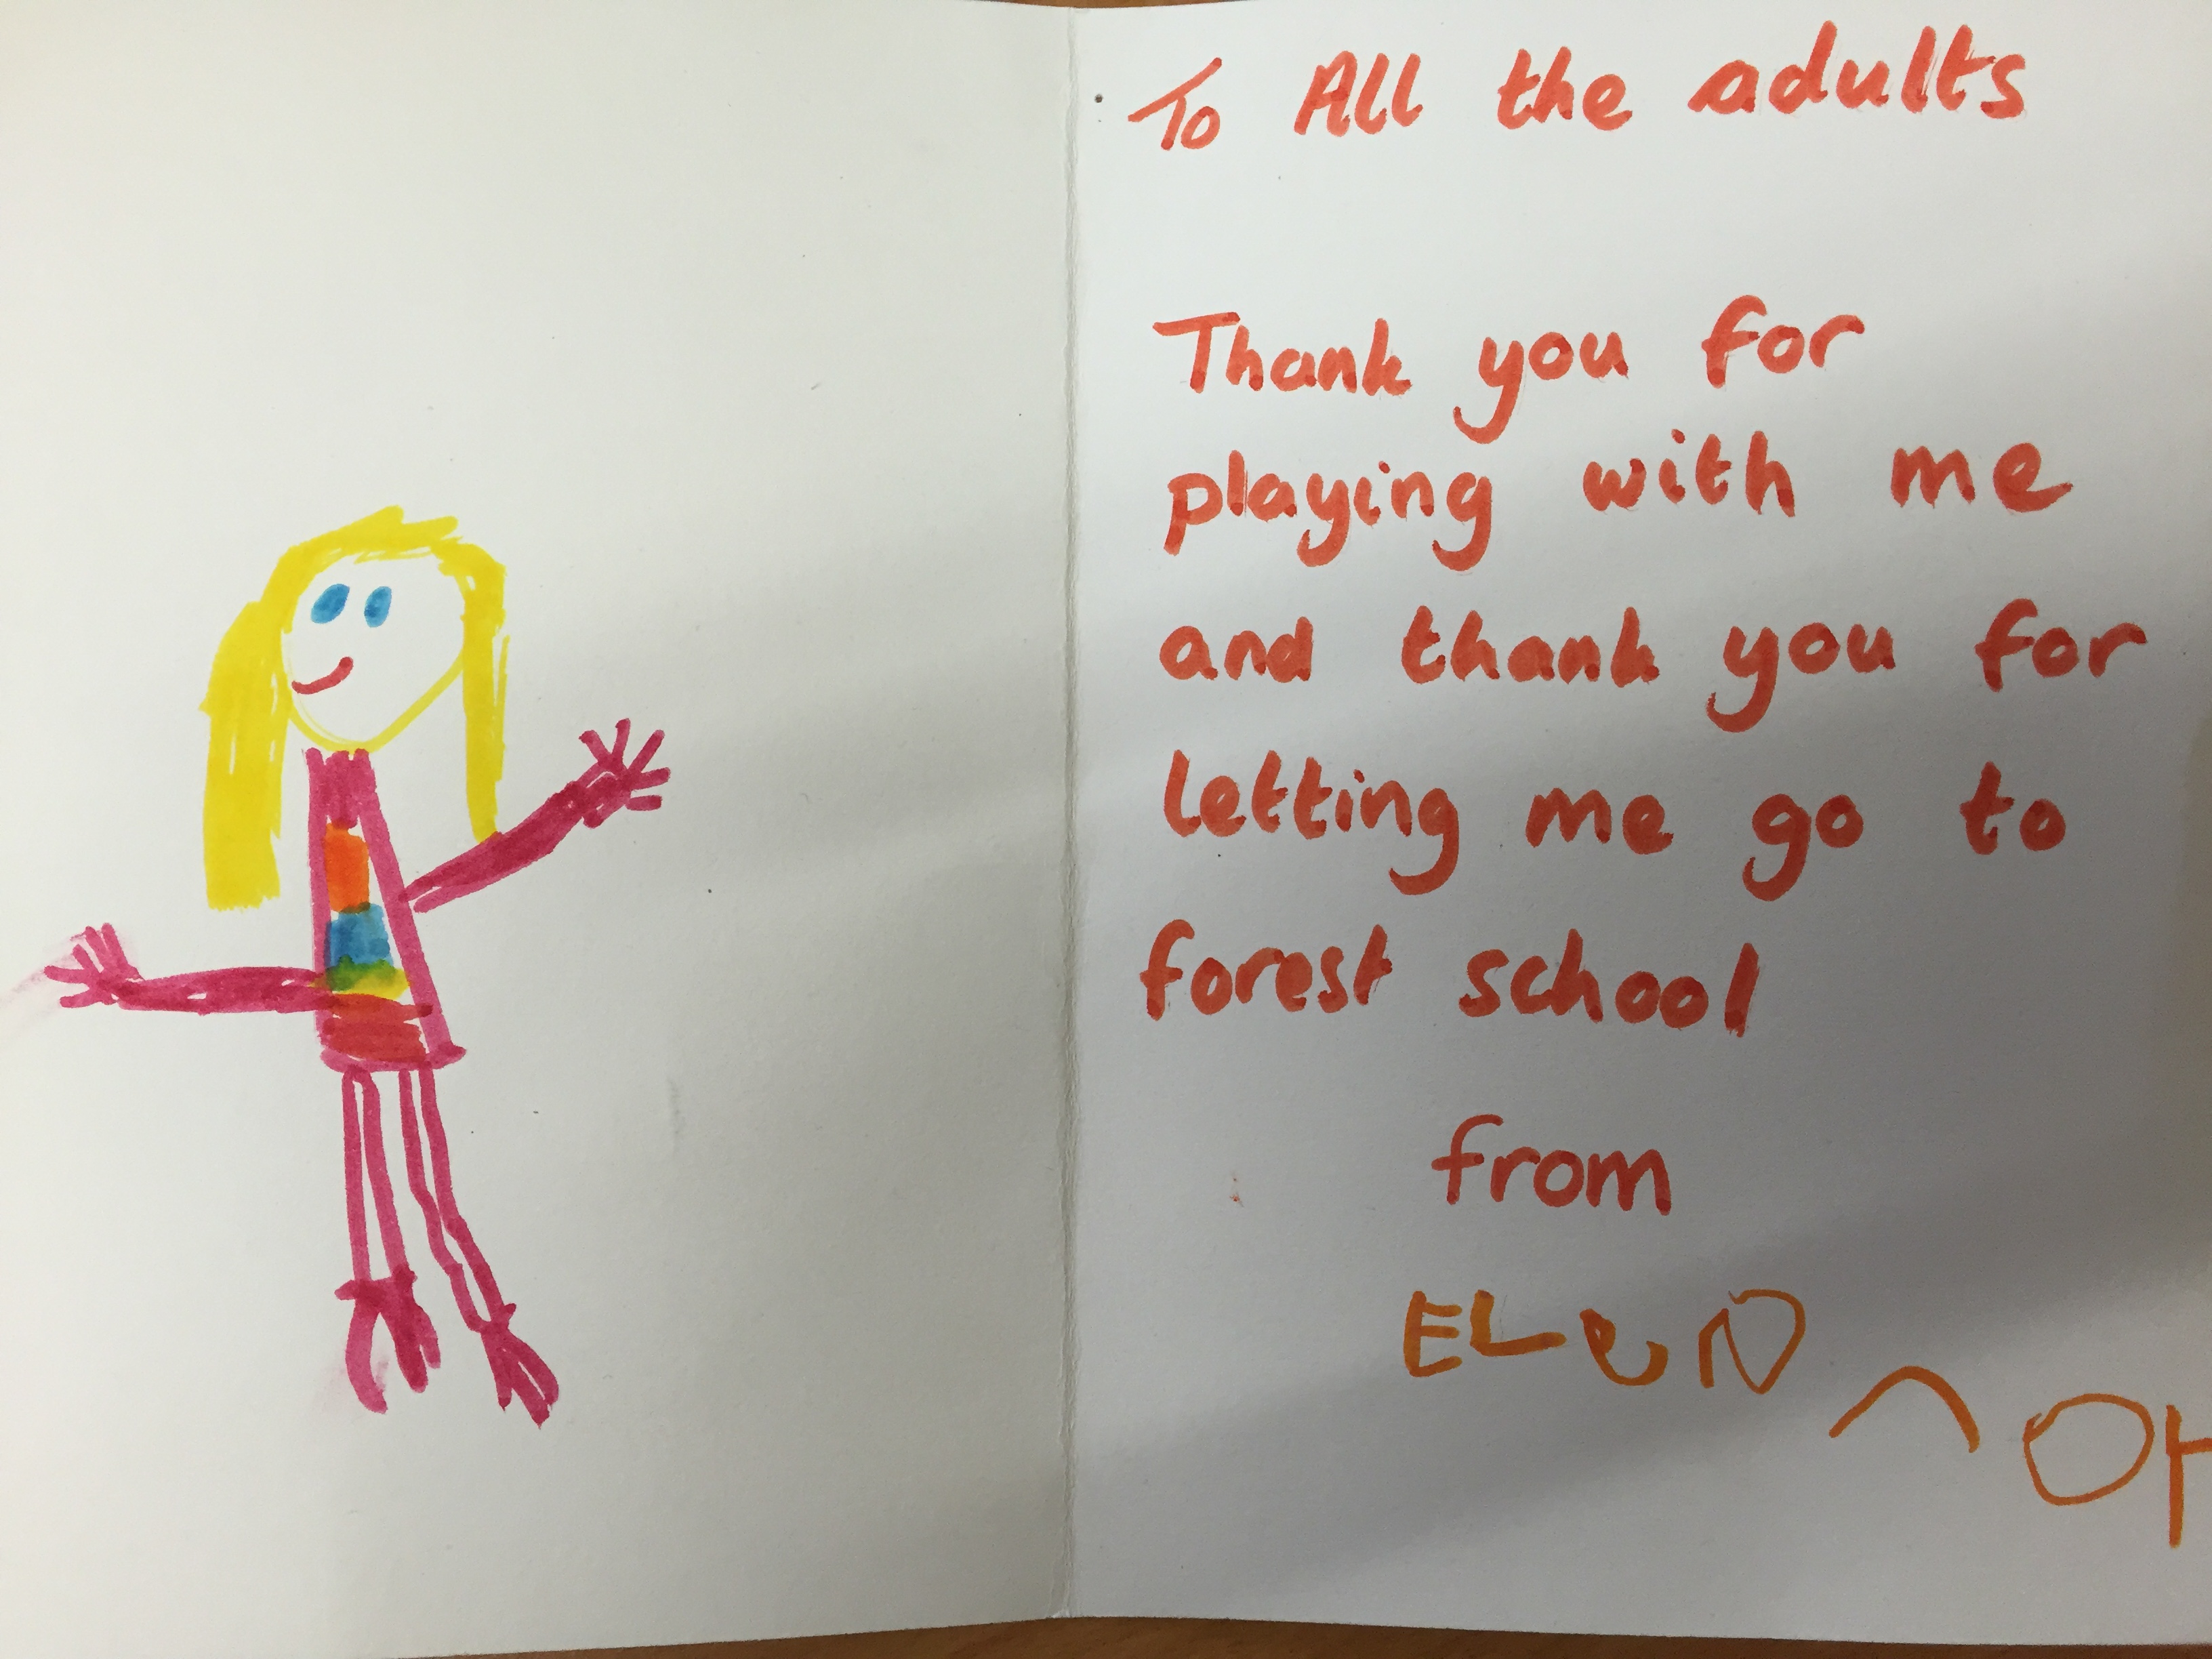 To All the adults
Thank you for
playing with me
and thank you for
letting me go to
forest school
from
ELeanor